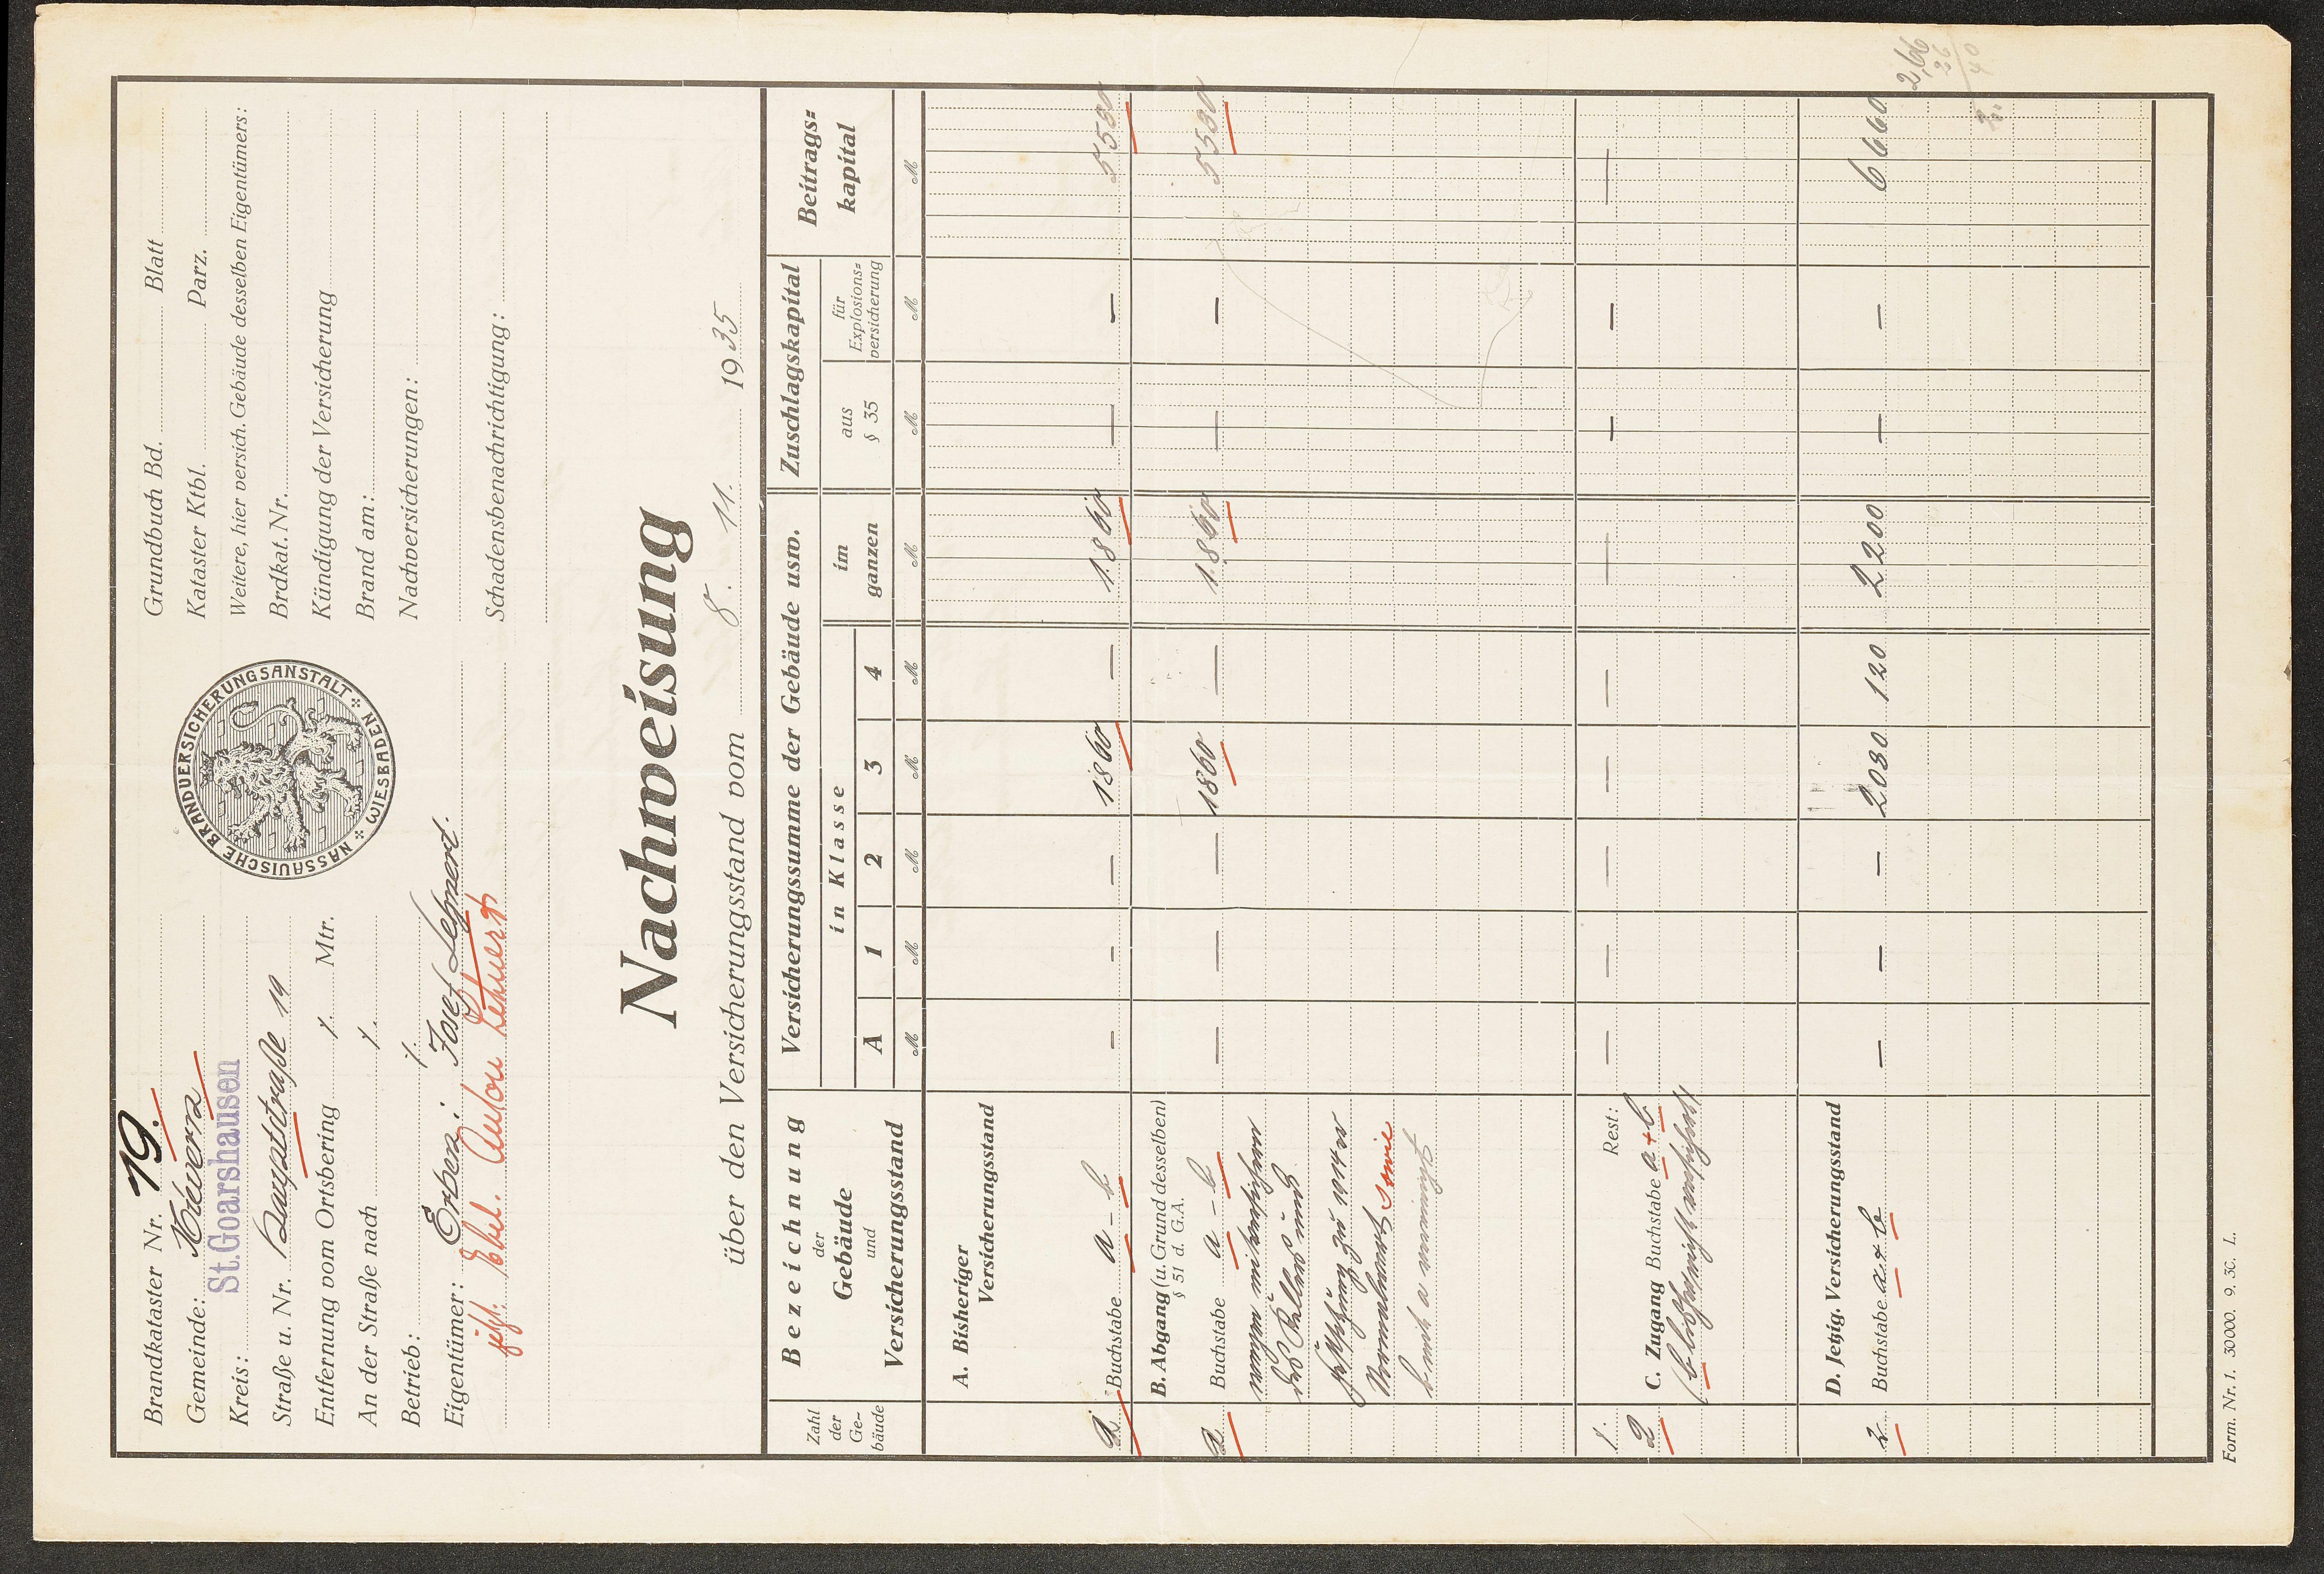 Brandkataster Nr. 19.
Gemeinde: Kiewern
Kreis: St.Goarshausen
Straße u. Nr. Hauptstraße 19
Entfernung vom Ortsbering ./. Mtr.
An der Straße nach ./.
Betrieb: ./.
Eigentümer: Erben: Josef Lehnert.
jetzt: Ehel. Anton Lehnert
NASSAUISCHE BRANDVERSICHERUNGSANSTALT WIESBADEN
Grundbuch Bd. Blatt
Kataster Ktbl. Parz.
Weitere, hier versich. Gebäude desselben Eigentümers:
Brdkat. Nr.
Kündigung der Versicherung
Brand am:
Nachversicherungen:
Schadensbenachrichtigung:
Nachweisung
über den Versicherungsstand vom 8. 11. 1935
Zahl der Ge-bäude
Bezeichnung der Gebäude und Versicherungsstand
Versicherungssumme der Gebäude usw.
in Klasse
A 1 2 3 4
im ganzen
Zuschlagskapital
aus § 35
für Explosions=versicherung
Beitrags=kapital
M M M M M M M M M
A. Bisheriger
Versicherungsstand
2 Buchstabe a - b — — — 1860 — 1860 — — 5580
B. Abgang (u. Grund desselben)
§ 51 d. G.A.
2 Buchstabe a - b — — — 1860 — 1860 — — 5580
wegen
des Kellers und
zu 1914er
sowie
a
Rest: — — — — — — — — —
1.
2 C. Zugang Buchstabe a + b
(b
D. Jetzig. Versicherungsstand
2 Buchstabe a + b — — — 2080 120 2200 — — 6660
2,66
26
40
Form. Nr. 1. 30000. 9. 30. L.